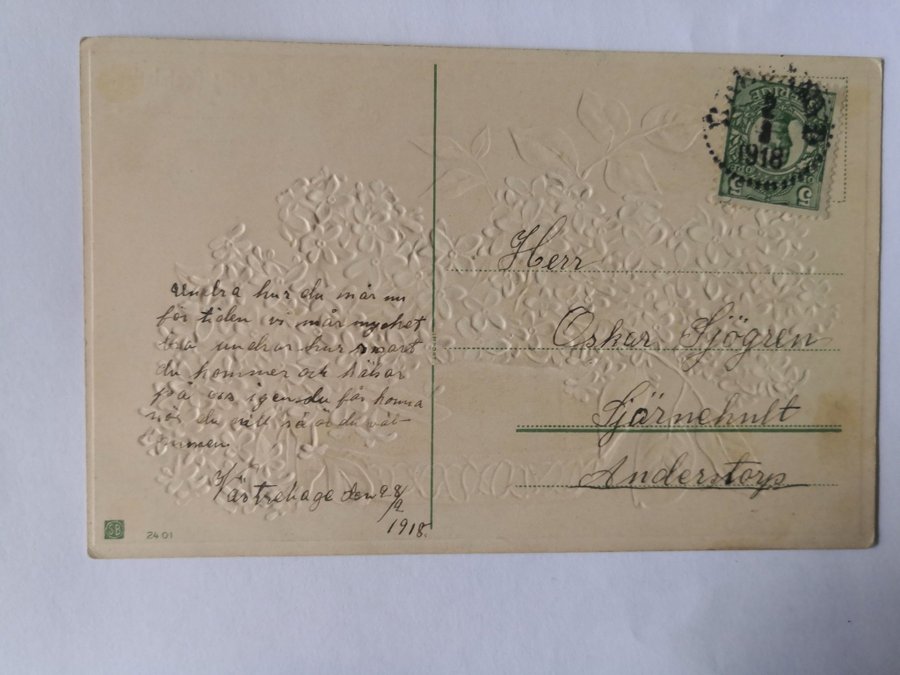 Undra hur du mår nu
för tiden vi mår mycket
bra undrar hur snart
du kommer och hälsar
på oss igen du får komma
när du vill så är du väl-
kommen.
Västrehage den 28/2
1918.
Herr
Oskar Sjögren
Stjärnehult
Anderstorp
2
1918
5
5
SB
2401